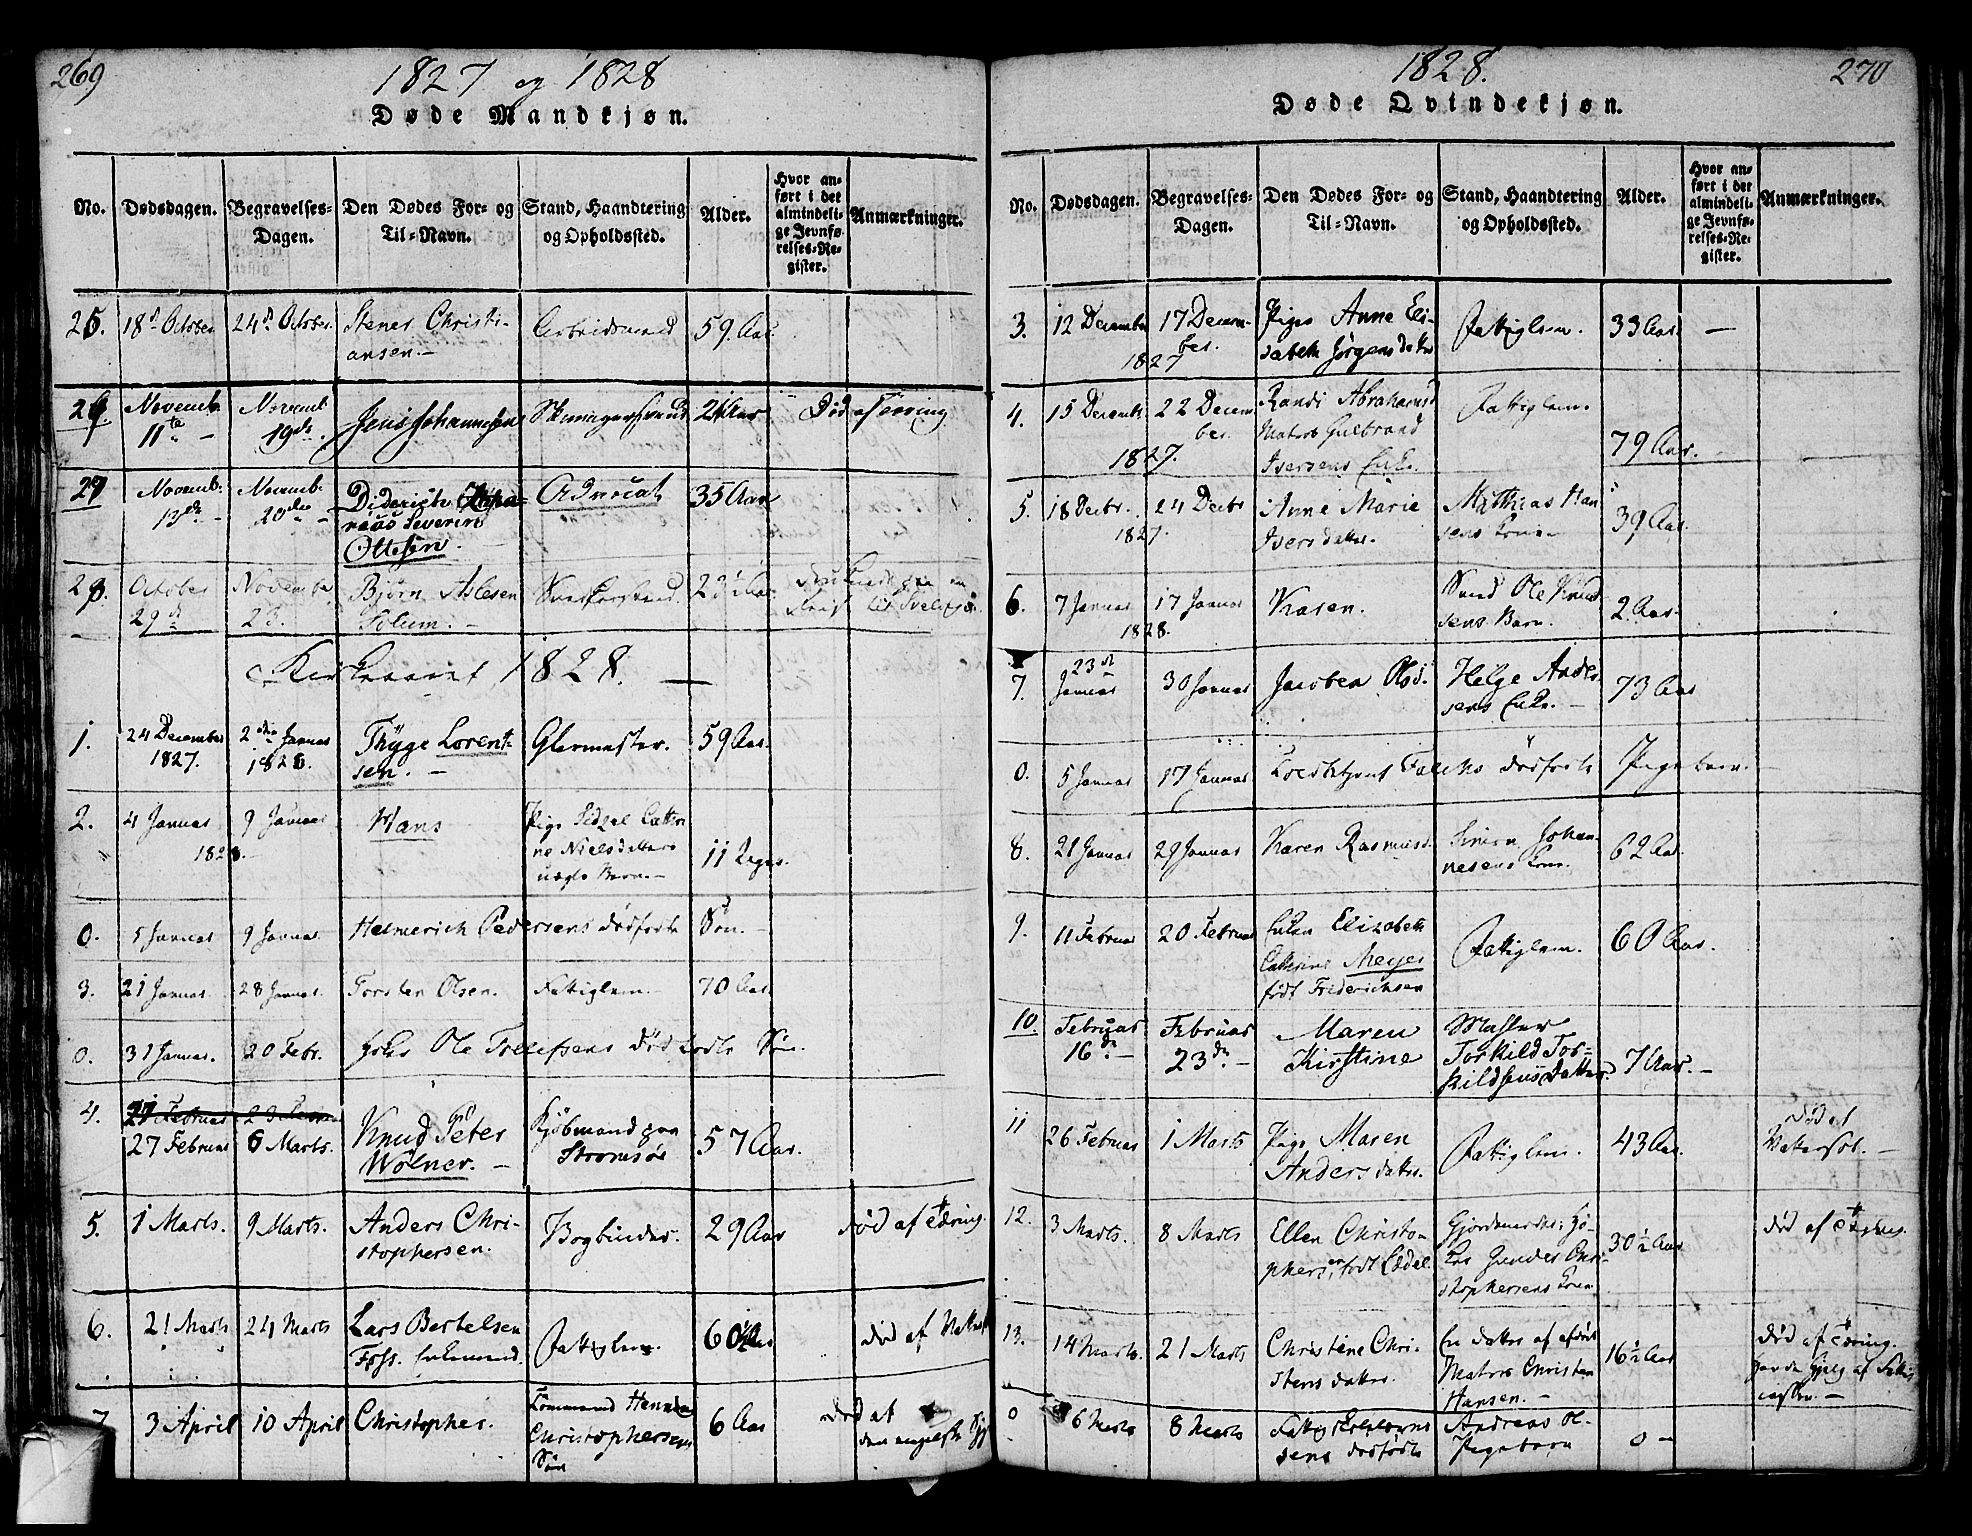 269
1827 og 1828
Døde Mandkjøn.
No. Dødsdagen. Begravelses-Dagen. Den Dødes For- og Til-Navn. Stand, Haandtering og Opholdssted. Alder. Hvor anført i det almindelige Jevnførelses-Register. Anmærkninger.
25. 18d October 24d October Stener Christi-
ansen.- Arbeidsmand 59 Aar
Novemb. 11te Novemb. 19de Jens Johannesen 21 Aar Død af Tæring
27 Novemb. Novemb. 20de Diderich
Severin
Ottesen Advocat 35 Aar
October 29d November 23. Bjørn Aslesen
Solum.- 23½ Aar
Kirkeaaret 1828.
1. 24 December 1827. 2den Januar 1828. Thyge Lorent-
sen.- Glarmester. 59 Aar.
2. 4 Januar 9 Januar Hans Pige Sidzel Cathri
1828. ne Nielsdatters
uægte Barn.- 11 Dage.
0. 5 Januar 9 Januar Helmerich Pedersens dødfødte Søn.
3. 21 Januar 28 Januar Torsten Olsen. Fattiglem. 70 Aar.
0. 31 Januar. 20 Febr. Ole Tollefsens dødfødte Søn.
4. 27 Februar 6 Marts. Knud Peter
Wølner.- Kjøbmand paa
Strømsøe 57 Aar.
5. 1 Marts. 9 Marts. Anders Chri-
stophersen. Bogbinder. 29 Aar død af Tæring.
6. 21 Marts 24 Marts Lars Bertelsen
Foss. Enkemand. Fattiglem 60½ Aar død af
7 3 April 10 April Christopher. Tømmermand
Christophersens
Søn 6 Aar Død af
den engelske Syge
270
1828.
Døde Qvindekjøn.
No. Dødsdagen. Begravelses-Dagen. Den Dødes For- og Til-Navn. Stand, Haandtering og Opholdssted. Alder. Hvor anført i det almindelige Jevnførelses-Register. Anmærkninger.
3. 12 December 17 Decem-
ber. 1827 Pige Anne Eli-
sabeth Jørgensdatter Fattiglem. 33 Aar
4. 15 Decemb. 22 Decem
ber. 1827. Randi Abrahamsd
Matros Gulbrand
Iversens Enke. Fattiglem. 79 Aar.
5. 18 Decbr. 24 Decbr 1827. Anne Marie
Iversdatter. Matthias Han
sens Kone 39 Aar
6. 7 Januar 17 Januar 1828. Karen. Ole Knud
sens Barn. 2 Aar.
7. 23d Januar 30 Januar Jacobea Olsd. Helge Ander
sens Enke.- 73 Aar
0. 5 Januar 17 Januar Falchs dødfødte Pigebarn.
8. 21 Januar 29 Januar Karen Rasmusd. Simen Johan-
nesens Kone. 62 Aar.
9. 11 Februar 20 Februar Enken Elizabeth
Cathrine Meyer
født Friderichsen Fattiglem. 60 Aar.
10. Februar 16de Februar 23de Maren
Kirstine
Torkild Tor-
kildsens Datter. 7 Aar.
11 26 Februar 1 Marts Pige Maren
Andersdatter. Fattiglem. 43 Aar. død af
Vatersot.
12. 3 Marts. 8 Marts Ellen Christo-
phersen, født Gunder Chri-
stophersens Kone 30½ Aar død af
13. 14 Marts. 21 Marts Christine Chri-
stensdatter. En datter af afdøde
Matros Christen
Hansen.- 16½ Aar død af Tæring.
havde Hjelp af Fattig
cassen.-
0 6 Marts 8 Marts
sens dødfødte Andreas Ol-
Pigebarn 0 -